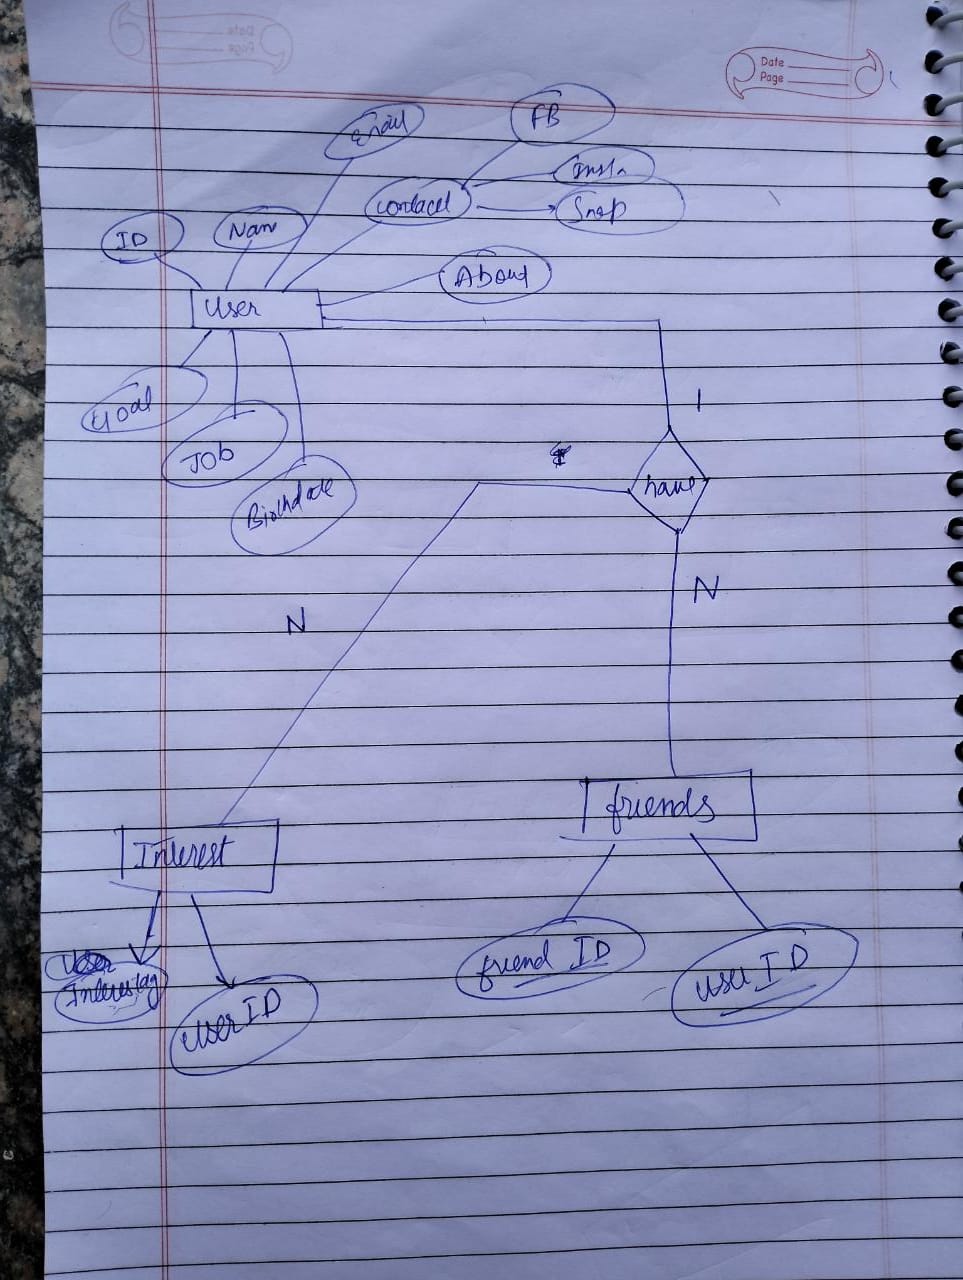 Date
Page
Email
FB
Insta
Contacct
Snap
ID
Nam
About
User
Goal
Job
Birthdate
1
have
N
N
friends
Interest
User
Interestag
user ID
friend ID
user ID